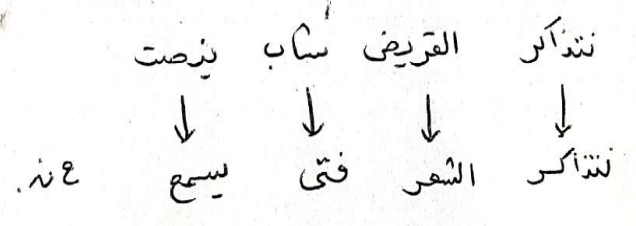 نتذاكر القريض شاب ينصت
↓ ↓ ↓ ↓
نتذاكر الشعر فتى يسمع